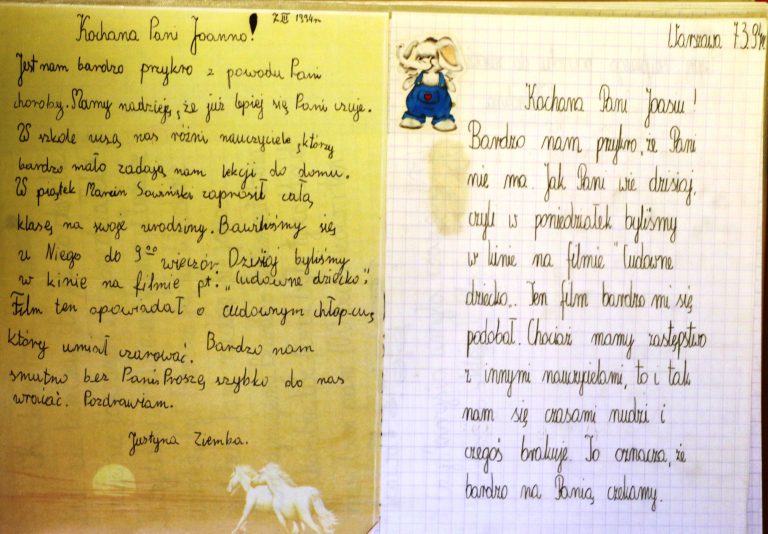 7 III 1994r
Kochana Pani Joanno!
Jest nam bardzo przykro z powodu Pani
choroby. Mamy nadzieję, że już lepiej się Pani czuje.
W szkole uczą nas różni nauczyciele, którzy
bardzo mało zadają nam lekcji do domu.
W piątek Marcin Sowiński zaprosił całą
klasę na swoje urodziny. Bawiliśmy się
u Niego do 9⁰⁰ wieczór. Dzisiaj byliśmy
w kinie na filmie pt. „Cudowne dziecko".
Film ten opowiadał o cudownym chłopcu,
który umiał czarować. Bardzo nam
smutno bez Pani. Proszę szybko do nas
wrócić. Pozdrawiam.
Justyna Ziemba.
Warszawa 7.3.94r.
Kochana Pani Joasiu!
Bardzo nam przykro, że Pani
nie ma. Jak Pani wie dzisiaj,
czyli w poniedziałek byliśmy
w kinie na filmie "Cudowne
dziecko„. Ten film bardzo mi się
podobał. Chociaż mamy zastępstwo
z innymi nauczycielami, to i tak
nam się czasami nudzi i
czegoś brakuje. To oznacza, że
bardzo na Panią czekamy.